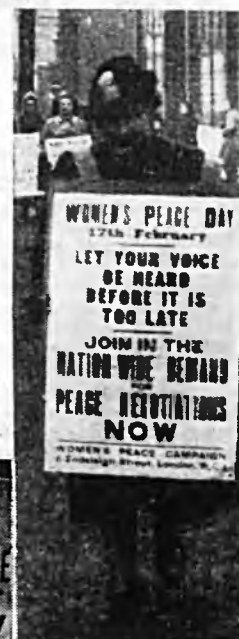 WOMEN'S PEACE DAY
17th February
LET YOUR VOICE
BE HEARD
BEFORE IT IS
TOO LATE
JOIN IN THE
NATION-WIDE DEMAND
FOR
PEACE NEGOTIATIONS
NOW
WOMEN'S PEACE CAMPAIGN
6 Endsleigh Street, London, W.C.1